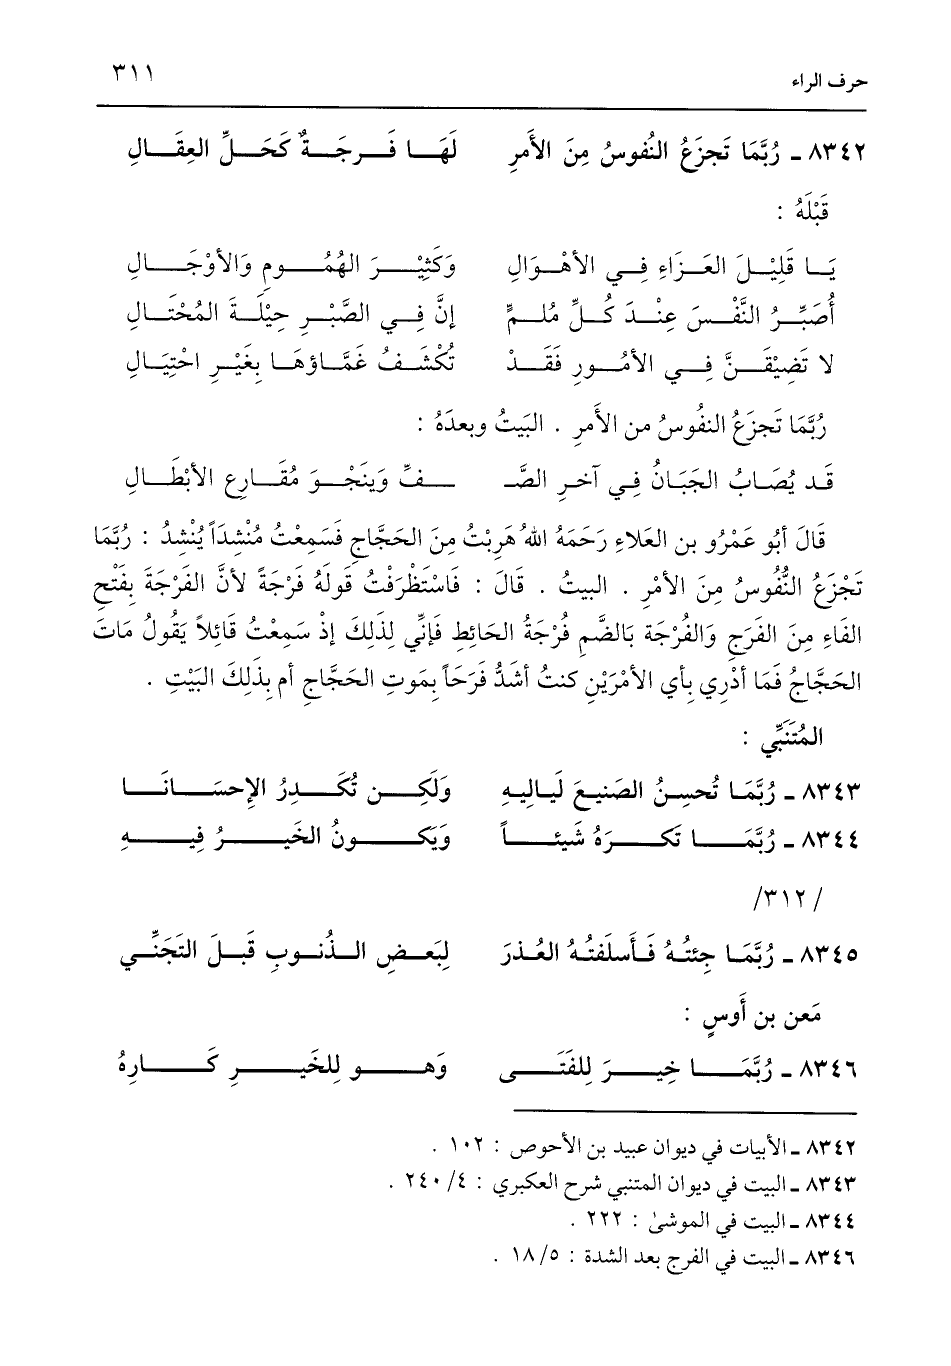 حرف الراء ٣١١
٨٣٤٢ ـ رُبَّمَا تَجزَعُ النُفوسُ مِنَ الأَمرِ لَهَا فَرجَةٌ كَحَلِّ العِقَالِ
قَبْلَهُ :
يَا قَلِيْلَ العَزَاءِ فِي الأهْوَالِ وَكَثِيْرَ الهُمُومِ وَالأوْجَالِ
أُصَبِّرُ النَّفْسَ عِنْدَ كُلِّ مُلمٍّ إنَّ فِي الصَّبْرِ حِيْلَةَ المُحْتَالِ
لا تَضِيْقَنَّ فِي الأمُورِ فَقَدْ تُكْشَفُ غَمَّاؤهَا بِغَيْرِ احْتِيَالِ
رُبَّمَا تَجزَعُ النفوسُ من الأَمرِ . البَيتُ وبعدَهُ :
قَد يُصَابُ الجَبَانُ فِي آخرِ الصَّـ ـفِّ وَينَجْوَ مُقَارِع الأبْطَالِ
قَالَ أَبُو عَمْرُو بن العَلاءِ رَحَمَهُ اللهُ هَرِبْتُ مِنَ الحَجَّاجِ فَسَمِعْتُ مُنْشِدَاً يُنْشِدُ : رُبَّمَا
تَجْزَعُ النُّفُوسُ مِنَ الأمْرِ . البيتُ . قَالَ : فَاسْتَظْرَفْتُ قَولَهُ فَرْجَةً لأنَّ الفَرْجَةَ بِفَتْحِ
الفَاءِ مِنَ الفَرَجِ وَالفُرْجَة بَالضَّمِ فُرْجَةُ الحَائِطِ فَإنِّي لِذَلِكَ إذْ سَمِعْتُ قَائِلاً يَقُولُ مَاتَ
الحَجَّاجُ فَمَا أدْرِي بِأي الأمْرَيْنِ كنتُ أشَدُّ فَرَحَاً بِمَوتِ الحَجَّاجِ أم بِذَلِكَ البَيْتِ .
المُتَنَبِّي :
٨٣٤٣ ـ رُبَّمَا تُحسِنُ الصنيعَ لَيَاليهِ وَلَكِن تُكَدِرُ الإحسَانَا
٨٣٤٤ ـ رُبَّمَا تَكرَهُ شَيئاً وَيَكونُ الخَيرُ فِيهِ
/٣١٢/
٨٣٤٥ ـ رُبَّمَا جِئتُهُ فَأَسلَفتُهُ العُذرَ لِبَعضِ الذُنوبِ قَبلَ التَجَنِّي
مَعن بن أَوسٍ :
٨٣٤٦ ـ رُبَّمَا خِيرَ لِلفَتَى وَهو لِلخَيرِ كَارِهُ
٨٣٤٢ ـ الأبيات في ديوان عبيد بن الأحوص : ١٠٢ .
٨٣٤٣ ـ البيت في ديوان المتنبي شرح العكبري : ٤/ ٢٤٠ .
٨٣٤٤ ـ البيت في الموشىٰ : ٢٢٢ .
٨٣٤٦ ـ البيت في الفرج بعد الشدة : ٥/ ١٨ .